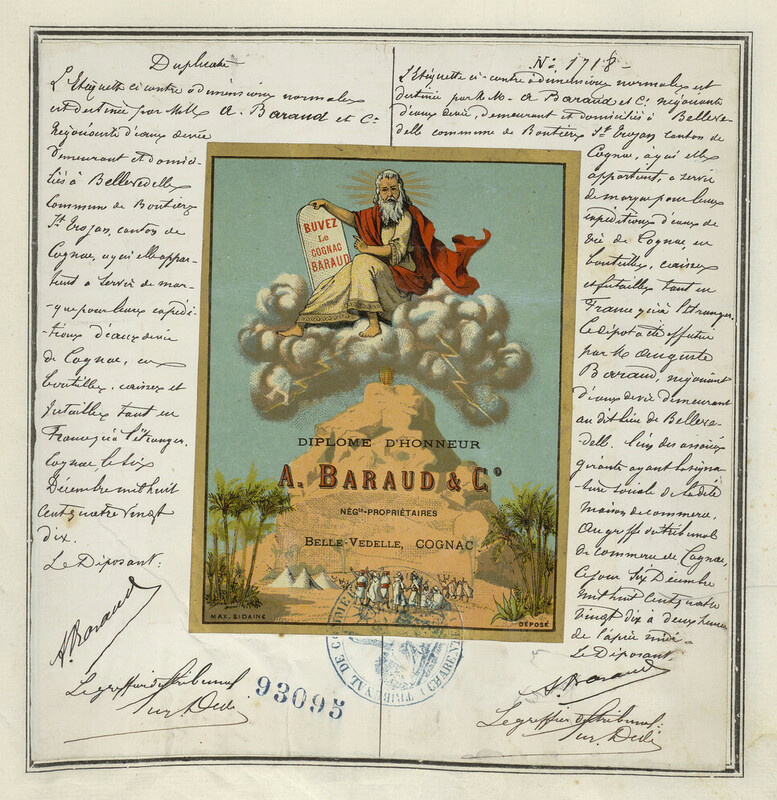 Duplicata
L'Etiquette ci contre à dimensions normales
est destinée par MM A. Baraud et Cie
Négociants d'eaux de vie
demeurant et domici-
liés à Bellevedelle
Commune de Boutiers
St Trojan, canton de
Cognac, à qui elle appar-
tient à servir de mar-
que pour leurs expédi-
tions d'eaux de vie
de Cognac, en
bouteilles, caisses et
futailles tant en
France qu'à l'étranger.
Cognac le six
Décembre mil huit
cent quatre vingt
dix.
Le Déposant:
A. Baraud
Le greffier du tribunal
93095
BUVEZ
Le
COGNAC
BARAUD
DIPLOME D'HONNEUR
A. BARAUD & Co
NÉGts-PROPRIÉTAIRES
BELLE-VEDELLE, COGNAC
MAX. SIDAINE
DÉPOSÉ
TRIBUNAL DE COMMERCE
CHARENTE
No 1718
L'Etiquette ci-contre à dimensions normales est
destinée par M.M. A Baraud et Cie négociants
d'eaux de vie, demeurant et domiciliés à Belleve-
delle commune de Boutiers St Trojan canton de
Cognac, à qui elle
appartient à servir
de marque pour leurs
expéditions d'eaux de
vie de Cognac en
bouteilles, caisses
et futailles tant en
France qu'à l'étranger.
Le dépot a été effectué
par M. Auguste
Baraud, négociant
d'eaux de vie demeurant
au dit lieu de Belleve-
delle. l'un des associés
gérants ayant la signa-
ture sociale de la dite
maison de commerce.
Au greffe du tribunal
de commerce de Cognac,
ce jour six Décembre
mil huit cent quatre
vingt dix à deux heures
de l'après midi.
Le Déposant
A. Baraud
Le greffier du tribunal: